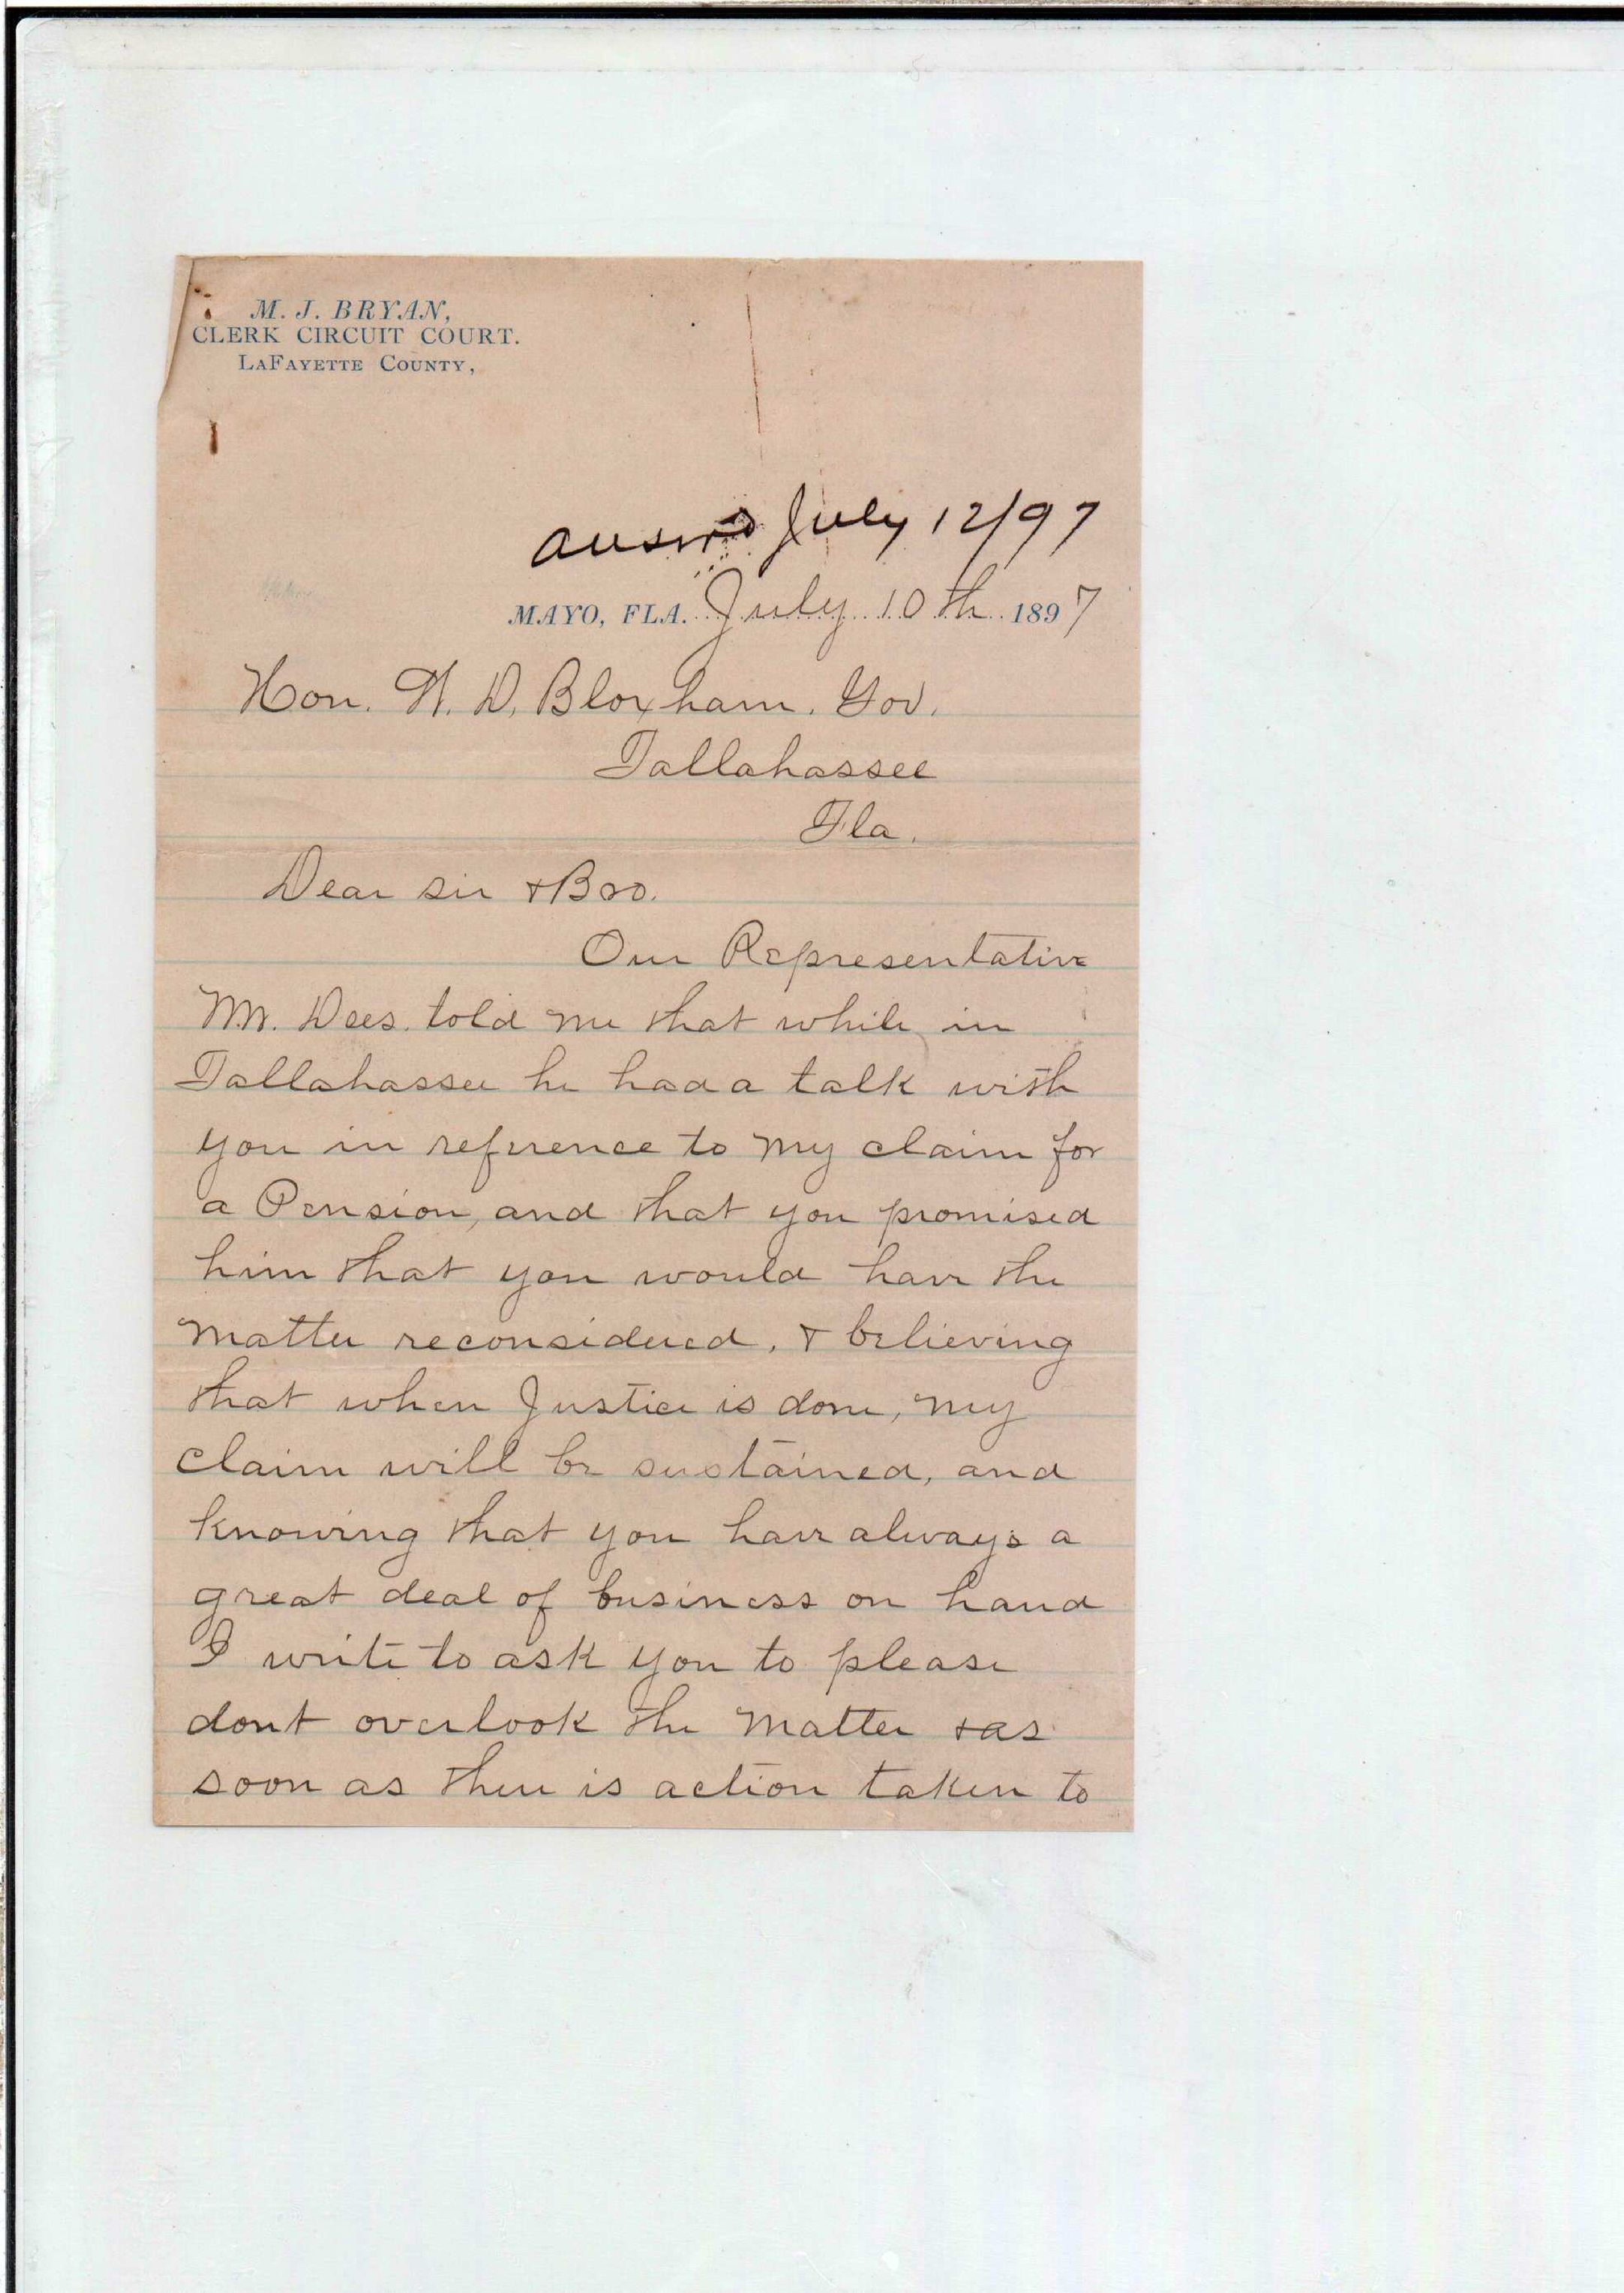 M. J. BRYAN,
CLERK CIRCUIT COURT.
LAFAYETTE COUNTY,
answd July 12/97
MAYO, FLA. July 10th 1897
Hon. W. D. Bloxham. Gov.
Tallahassee
Fla.
Dear sir & Bro.
Our Representative
Mr. Dees. told me that while in
Tallahassee he had a talk with
you in reference to my claim for
a Pension, and that you promised
him that you would have the
matter reconsidered. & believing
that when Justice is done, my
claim will be sustained, and
knowing that you have always a
great deal of business on hand
I write to ask you to please
dont overlook the matter & as
soon as there is action taken to